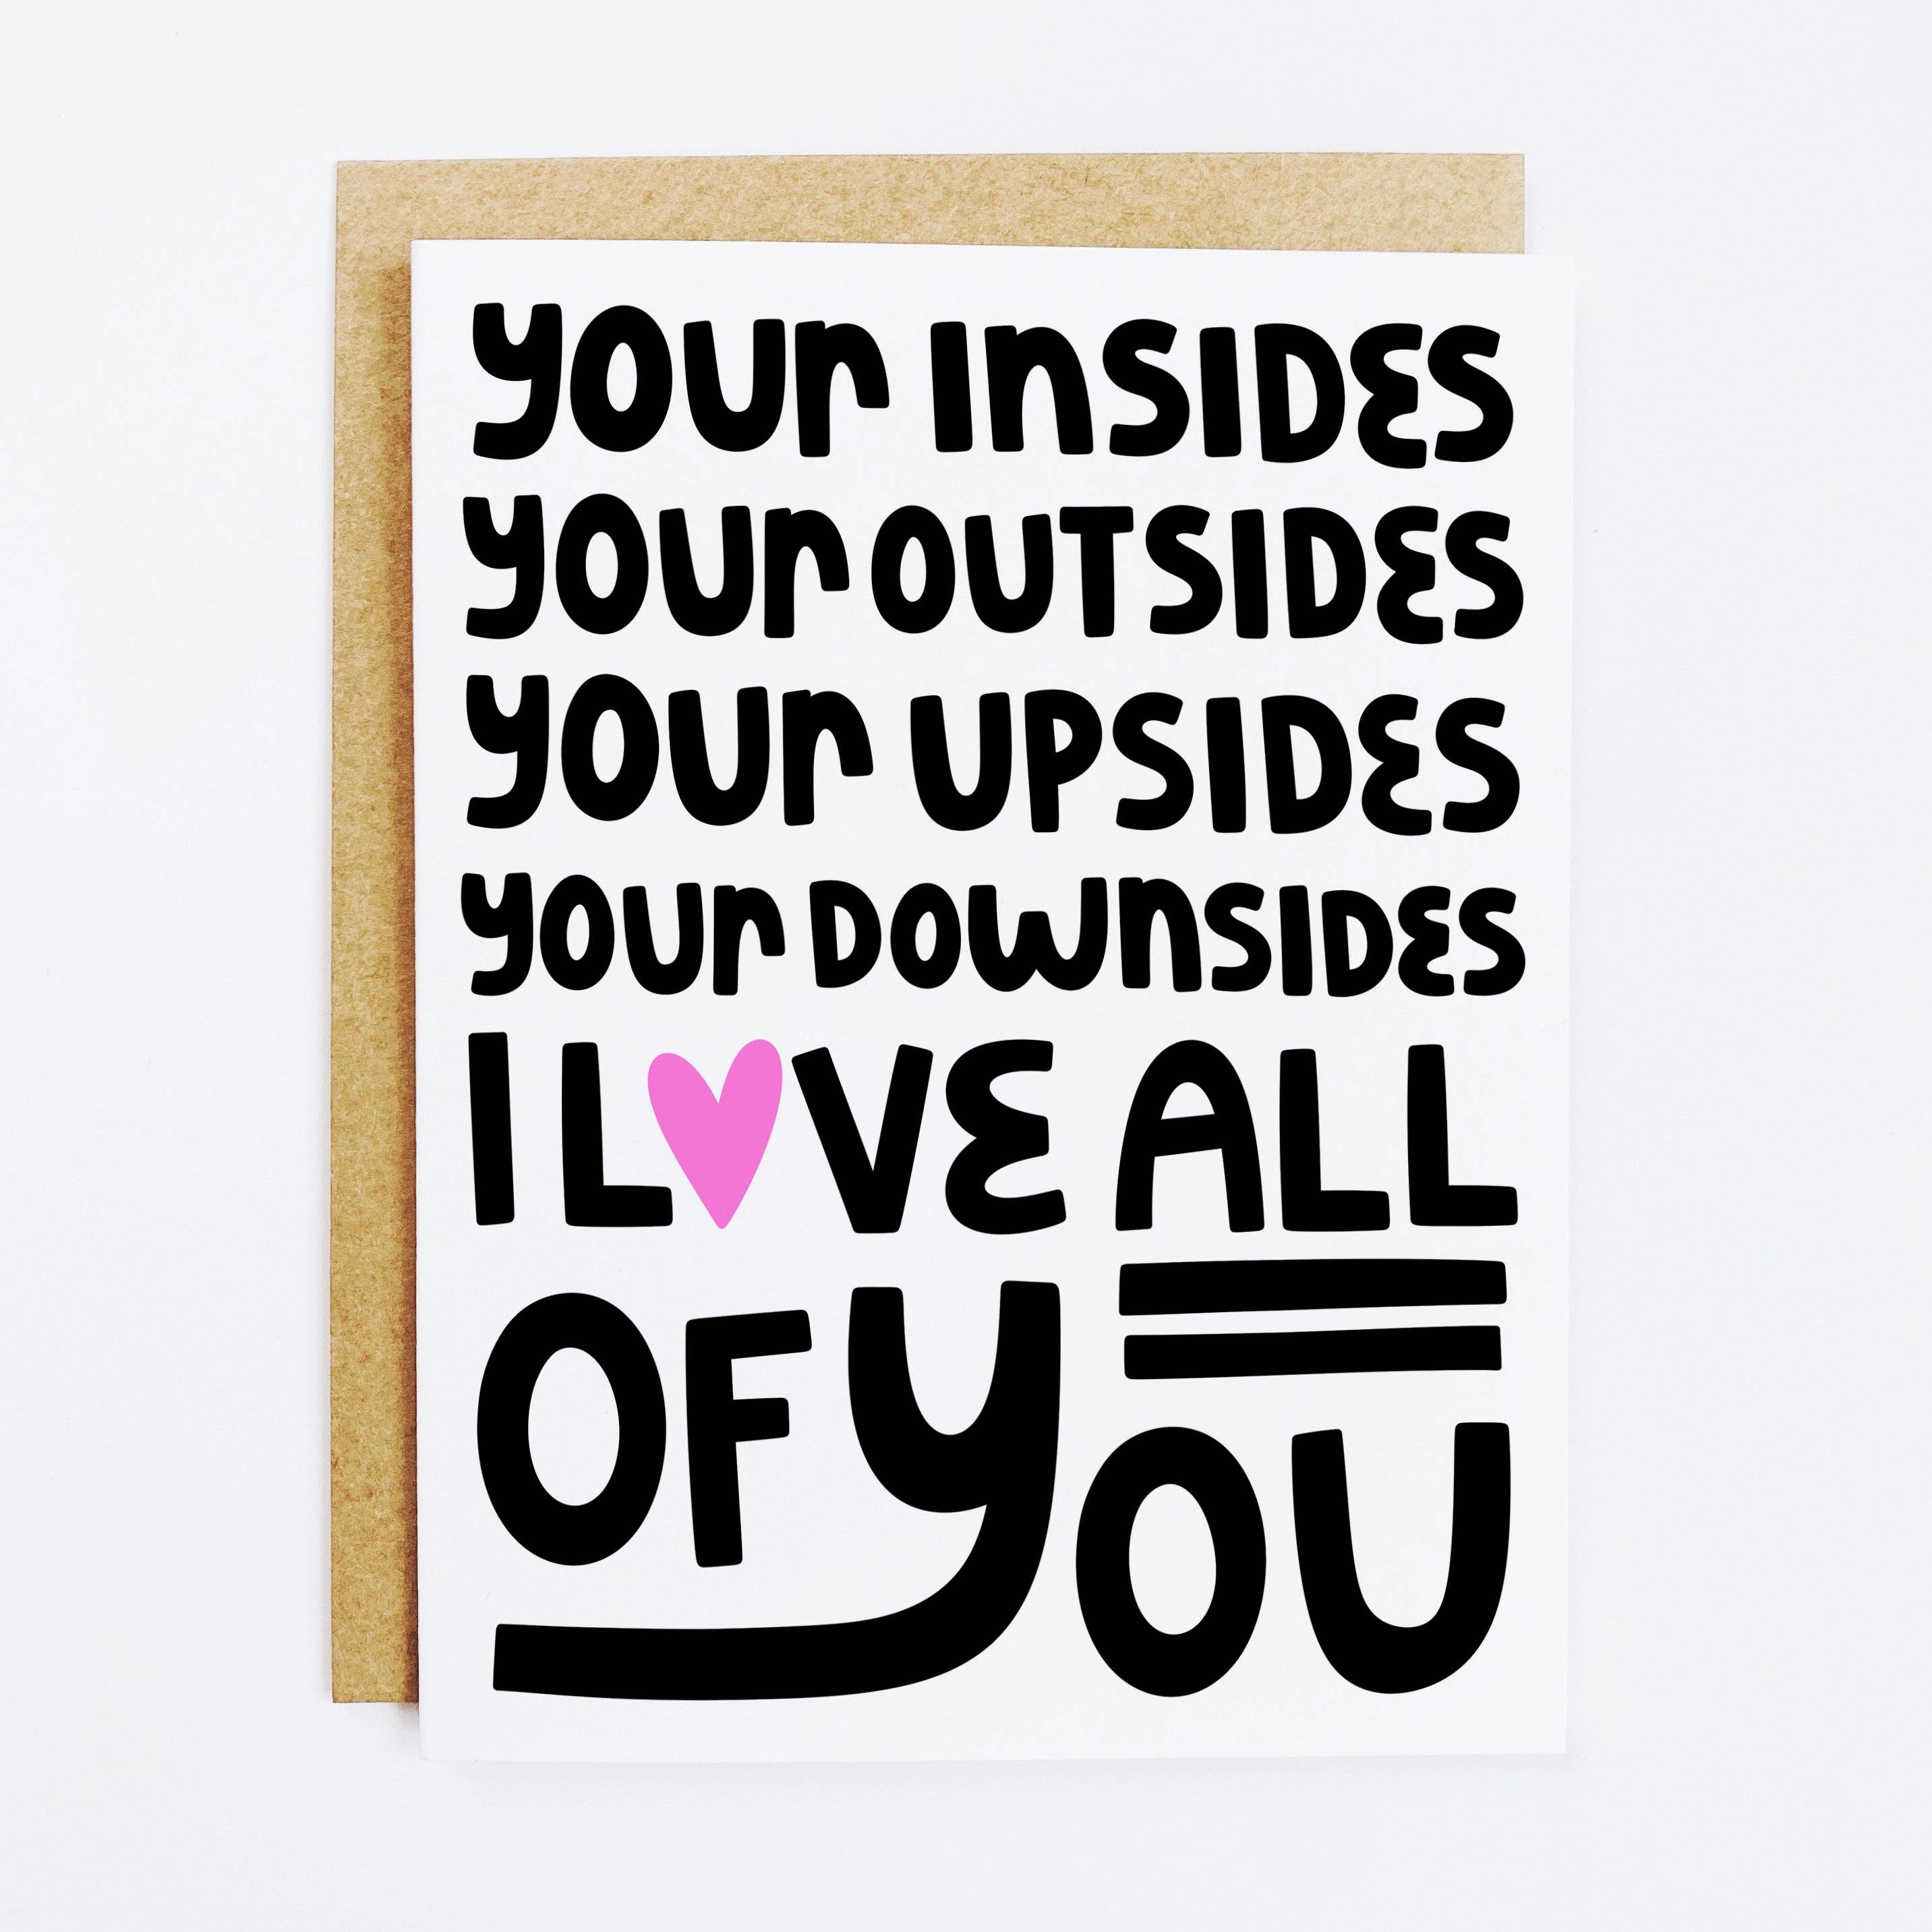 YOUR INSIDES
YOUR OUTSIDES
YOUR UPSIDES
YOUR DOWNSIDES
I LOVE ALL
OF YOU